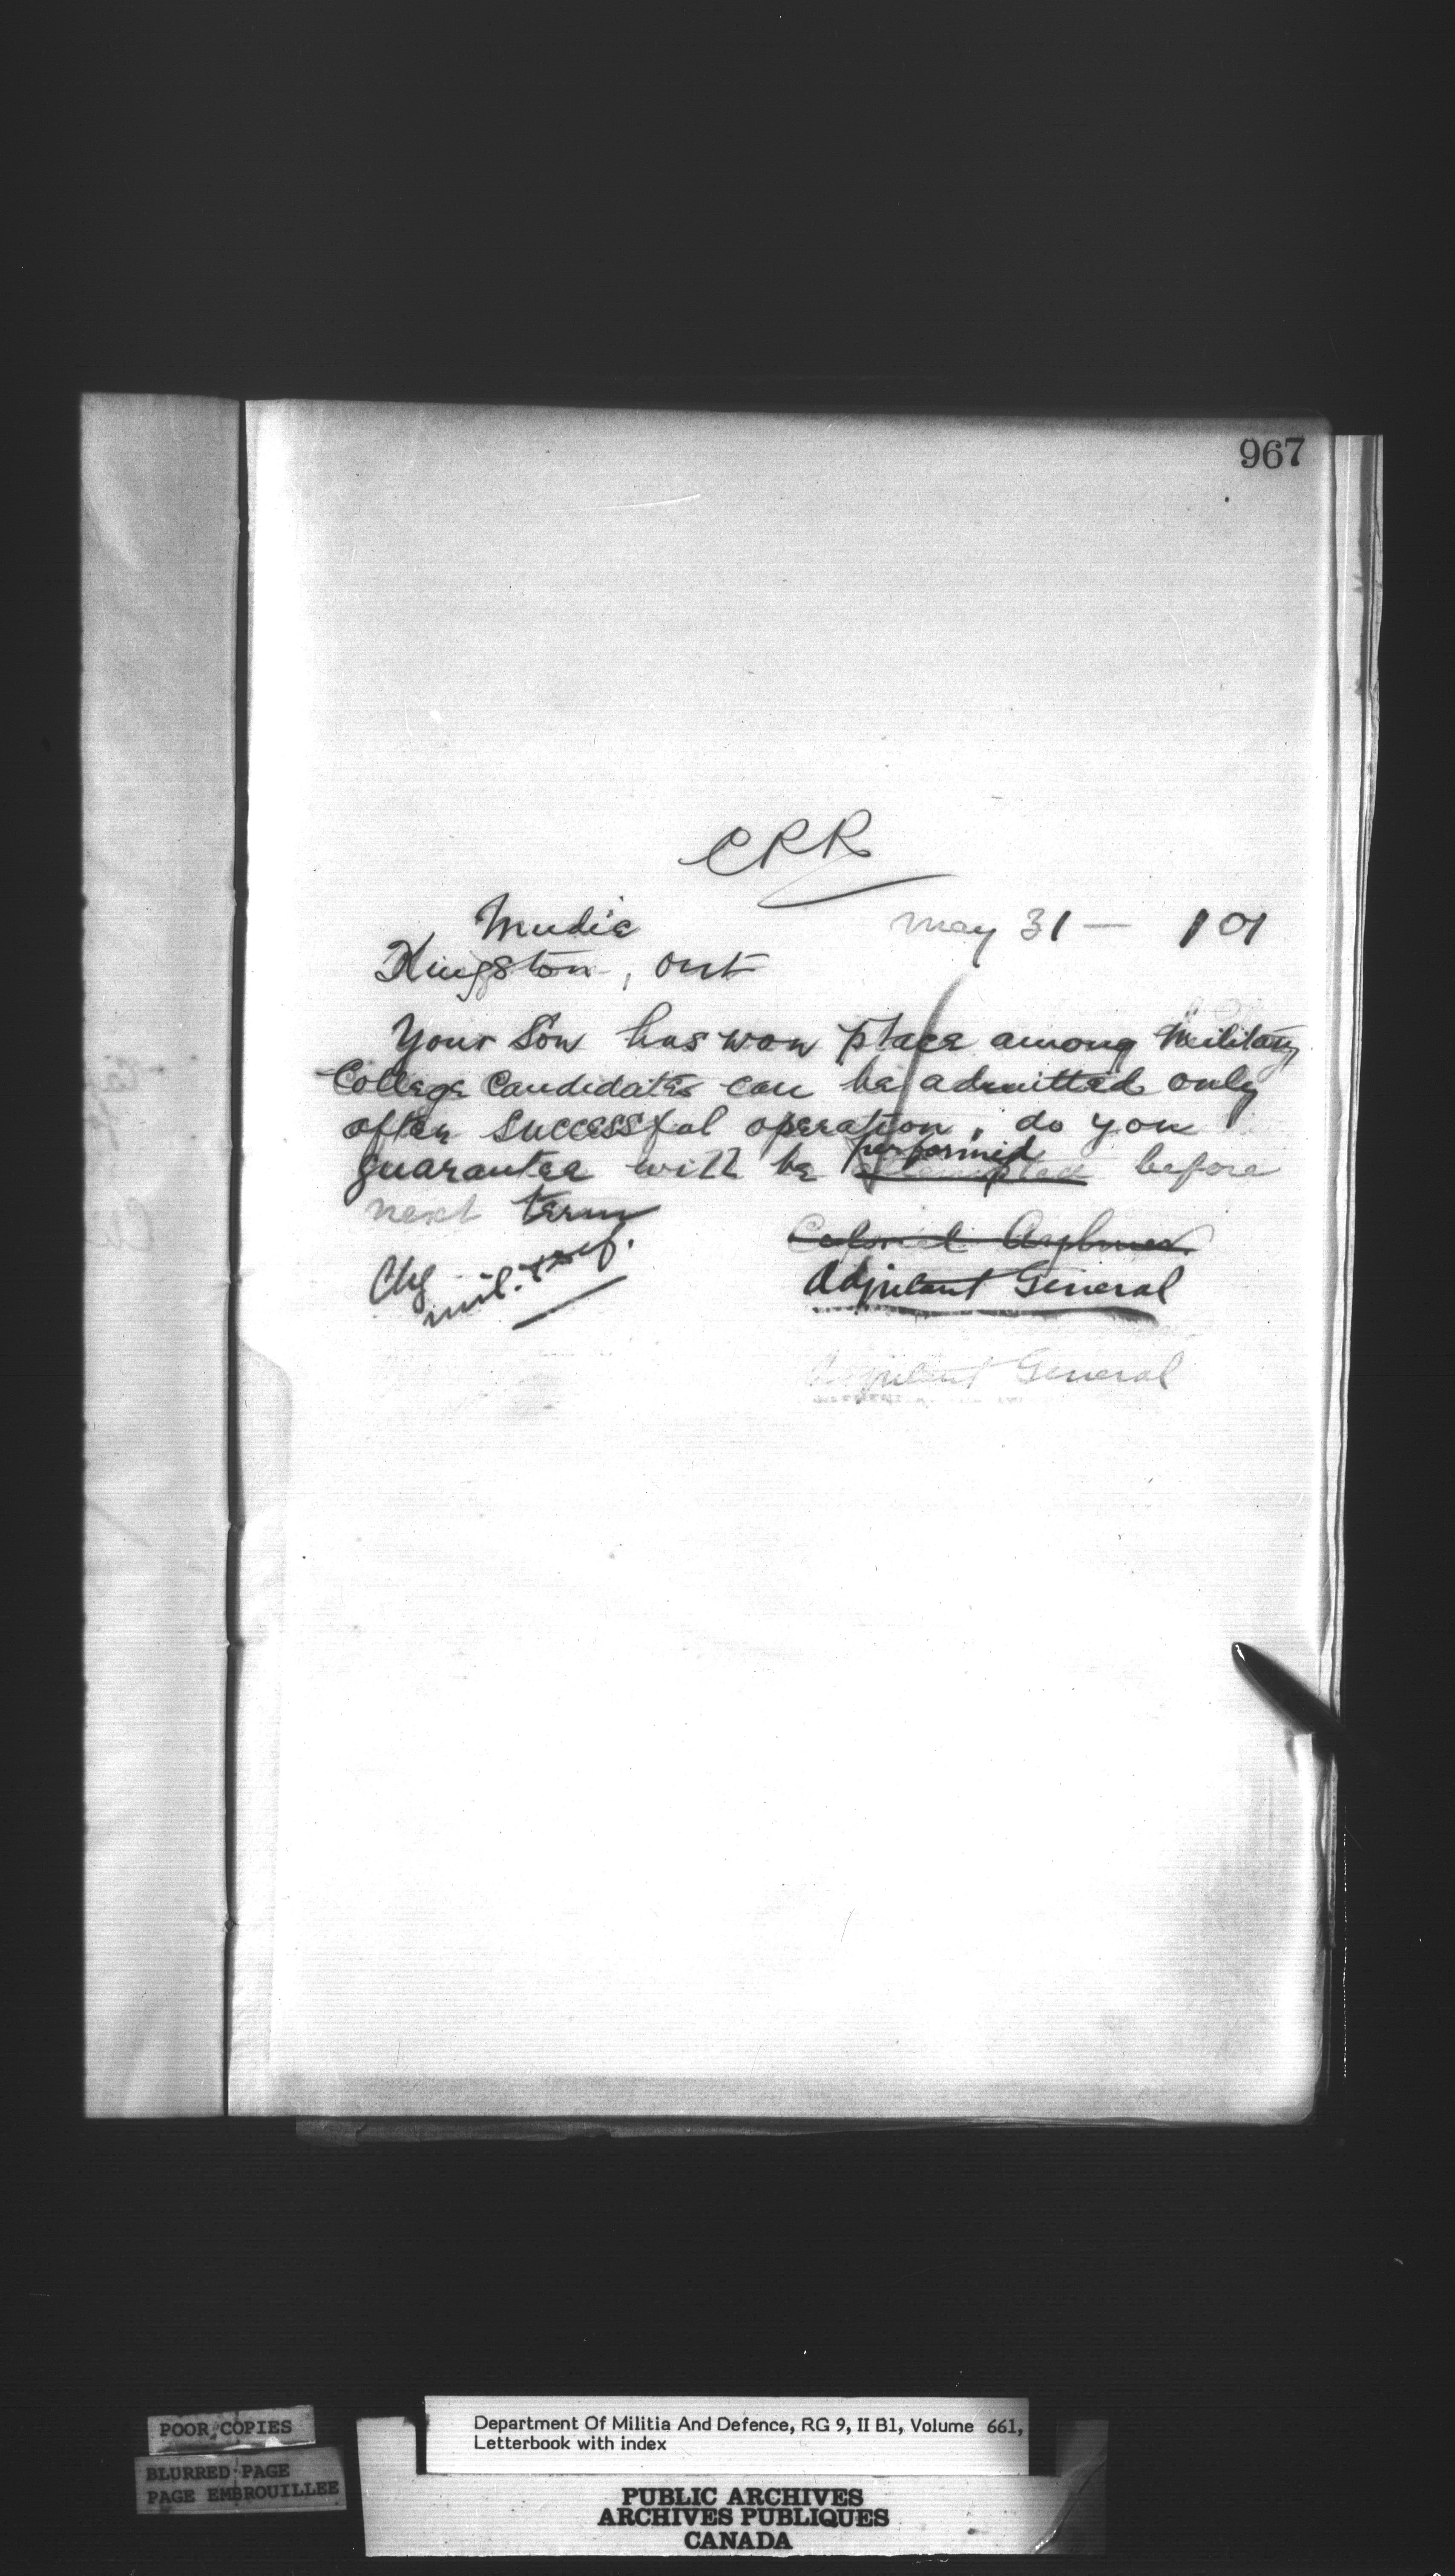 967
CRR
Mudie
May 31 — 101
Kingston, Ont
Your Son has won place among Military
College Candidates can be admitted only
after successful operation, do you
performed
guarantee will be attempted before
next term
Colonel Aylmer
Chg
mil. & def.
Adjutant General
Adjutant General
POOR COPIES
BLURRED PAGE
PAGE EMBROUILLEE
Department Of Militia And Defence, RG 9, II B1, Volume 661,
Letterbook with index
PUBLIC ARCHIVES
ARCHIVES PUBLIQUES
CANADA